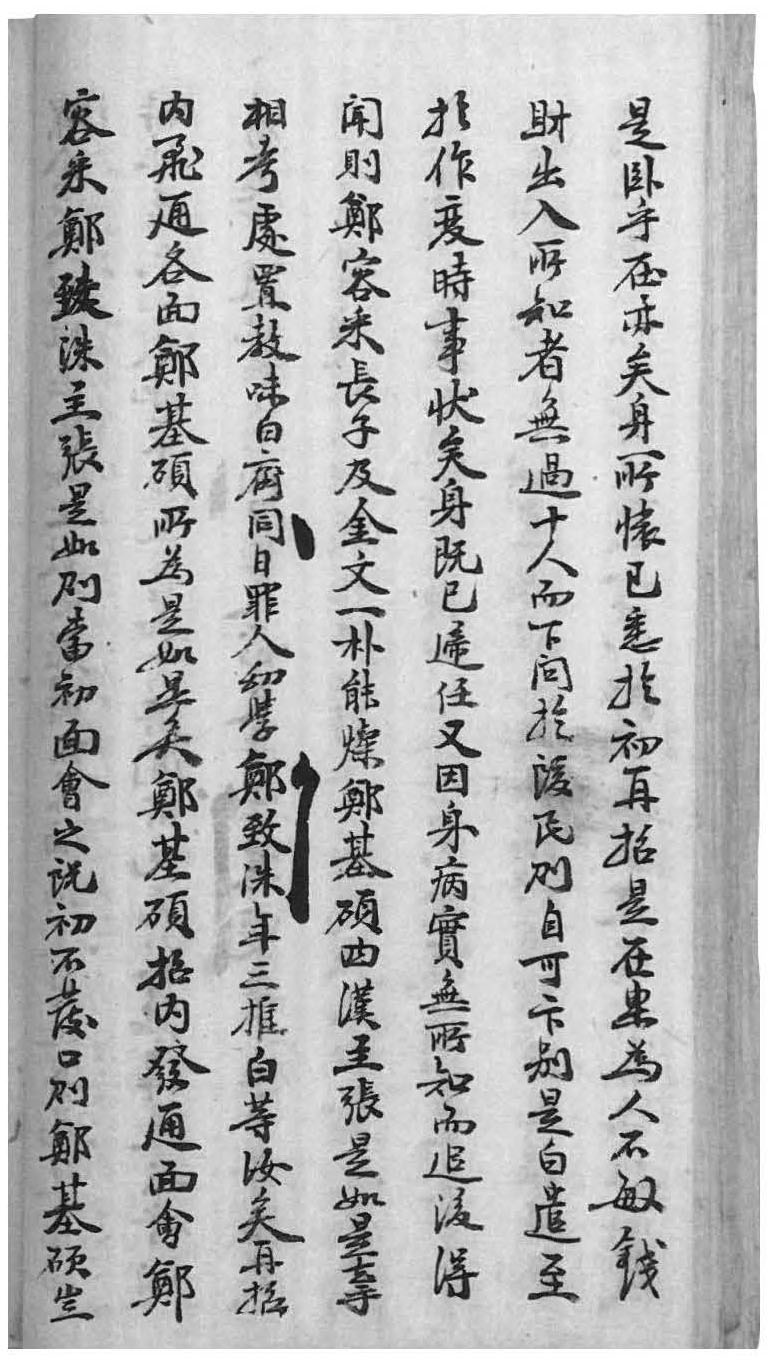 是臥乎在亦矣身所懷已悉於初再招是在果為人不敏錢
財出入所知者無過十人而下問於該民則自可卞別是白遣至
於作变時事狀矣身旣已遞任又因身病實無所知而追後得
聞則鄭容采長子及金文一朴能燦鄭基碩四漢主張是如是乎等
相考處置敎味白齊同日罪人幼學鄭致洙年三推白等汝矣再招
內飛通各面鄭基碩所為是如是矣鄭基碩招內發通面會鄭
容采鄭致洙主張是如則當初面會之說初不發口則鄭基碩豈